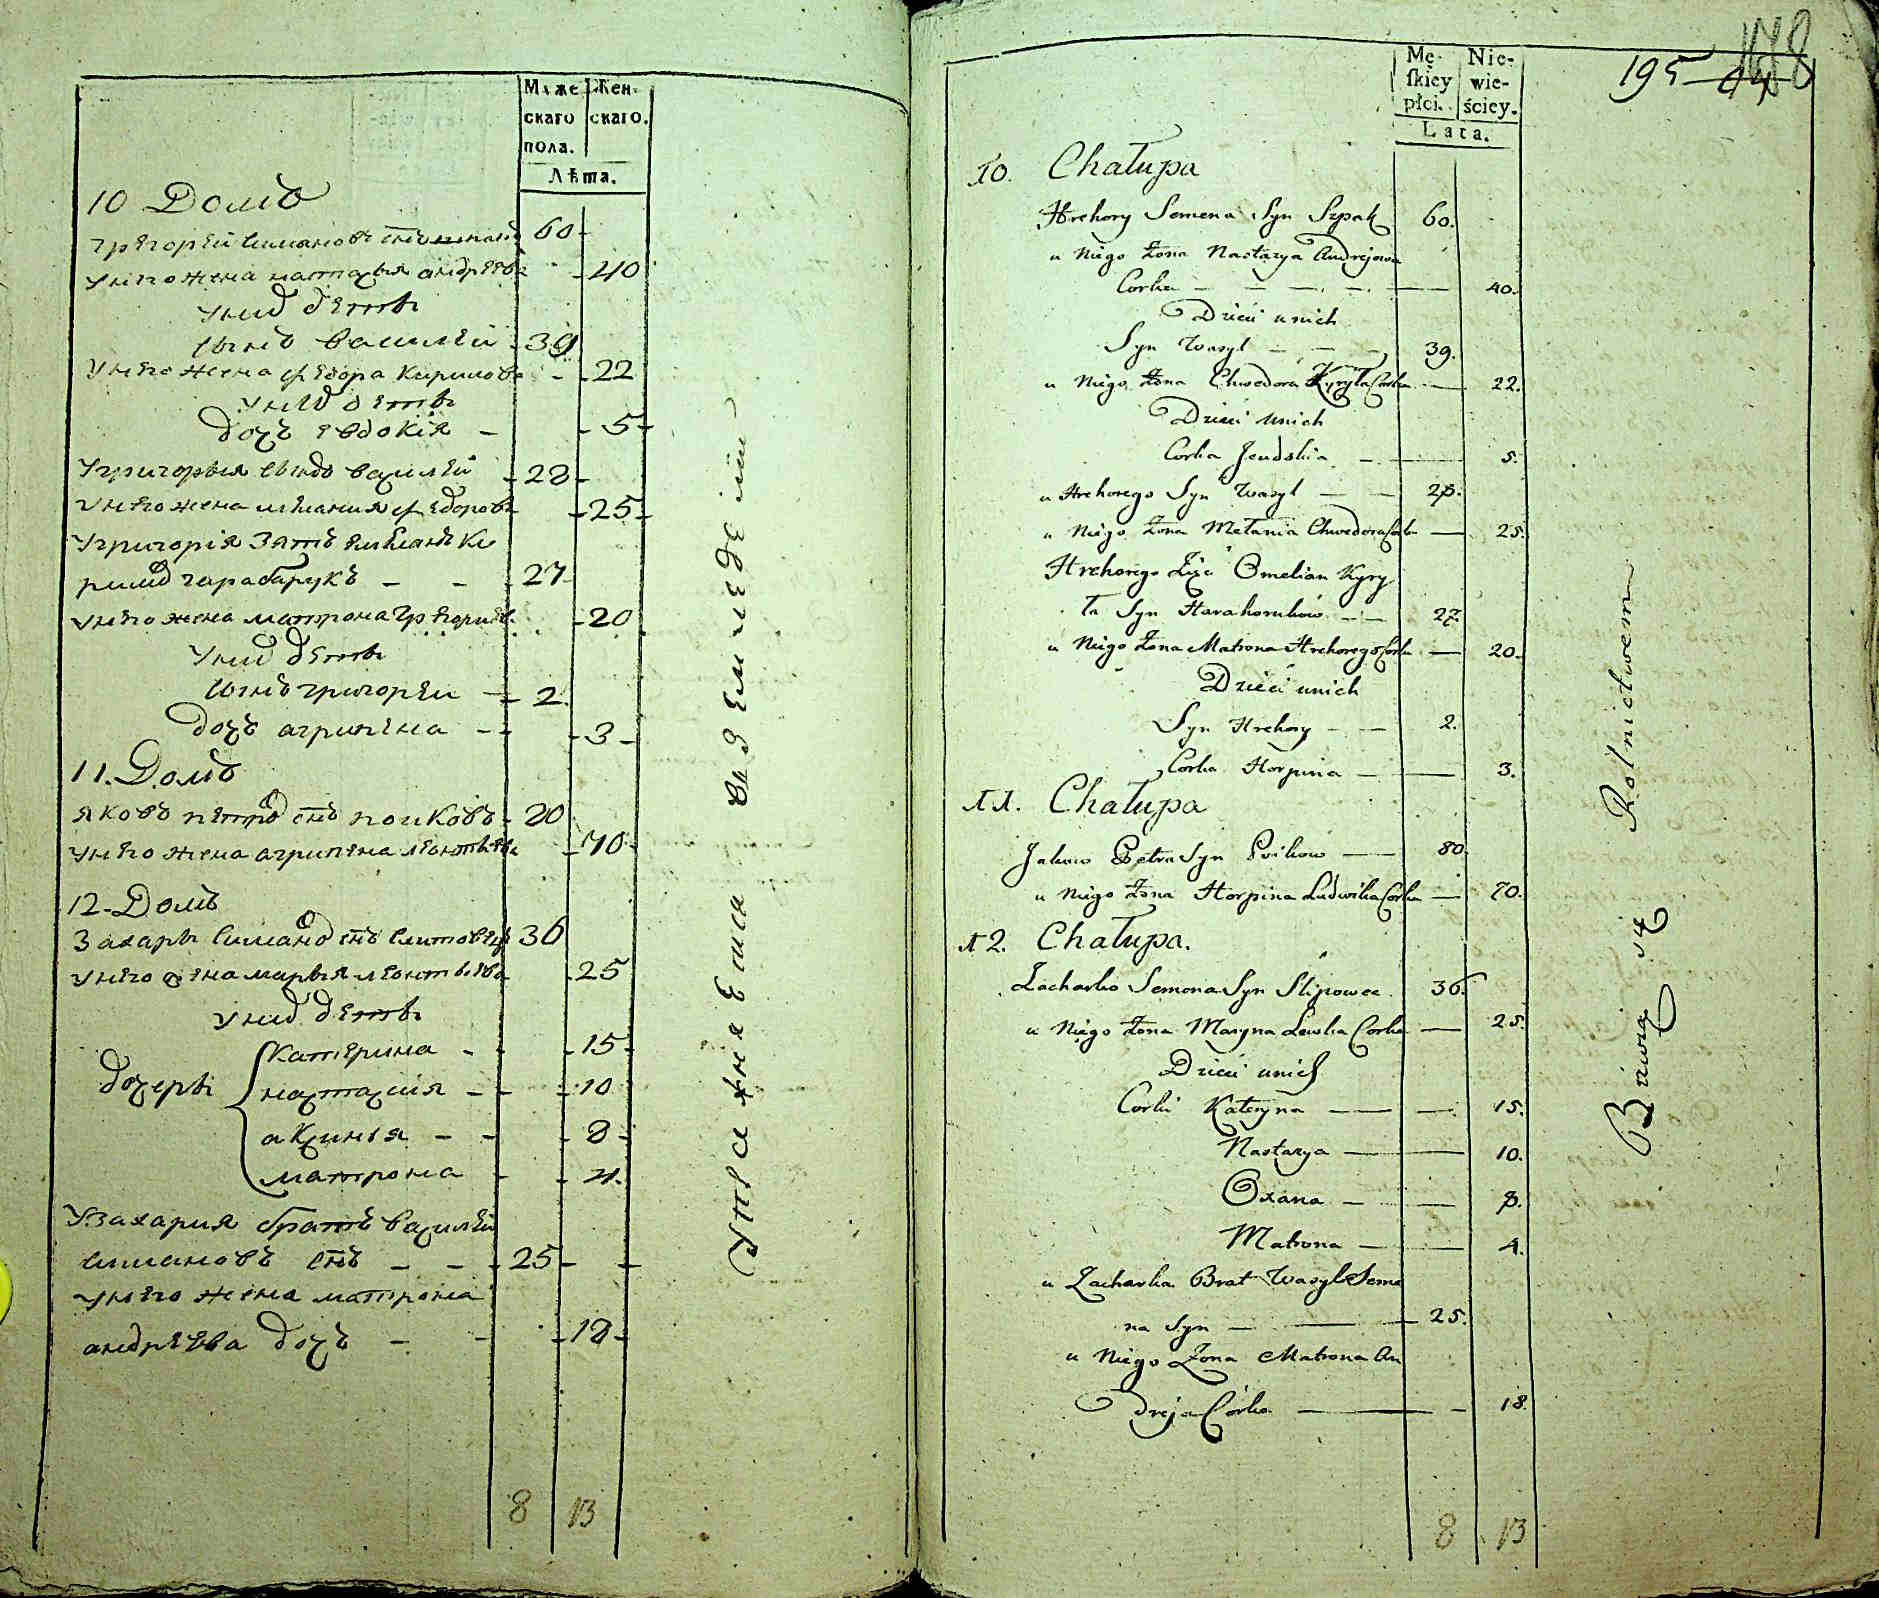 Муже Жен
скаго скаго.
пола.
Лѣта.
10 Домъ
григорей симановъ снъ 60
унего жена настасья андрѣева 40
унихъ дети
сынъ василей 39
унего жена федора кирилова 22
унихъ дети
дочь евдокія 5
угригорья сынъ василей 28
унего жена мѣлания федорова 25
угригорія зять емѣлианъ ки
рилов гарабарукъ 27
унего жена матрона григорьев 20
унихъ дети
сынъ григорей 2
дочь агрипена 3
11. Домъ
яковъ петров снъ поиковъ 80
унего жена агрипена леонтьева 70
12. Домъ
Захаръ симанов снъ слиповецъ 36
унего жена марья леонтьева 25
унихъ дети
дочери катерина 15
настасия 10
аксинья 8
матрона 4
узахария братъ василей
симановъ снъ 25
унего жена матрона
андреева дочь 18
8 13
упражняется в земледелии
195 44
178
Mę- Nie-
skiey wie-
płci. ściey.
Lata.
10. Chałupa
Hrehory Semena Syn Szpak 60.
u Niego Żona Nastazya Andrejowa
Corka 40.
Dzieci unich
Syn Wasyl 39.
u Niego Żona Chwedora Kyryła Corka 22.
Dzieci unich
Corka Jeudokia 5.
u Hrehorego Syn Wasyl 28.
u Niego Żona Mełania Chwedora Corka 25.
Hrehorego Zięć Omelian Kyry
ła Syn Harahorukow 27.
u Niego Żona Matrona Hrehorego Corka 20.
Dzieci unich
Syn Hrehory 2.
Corka Horpina 3.
11. Chałupa
Jakow Petra Syn Poikow 80.
u Niego Żona Horpina Ludwika Corka 70.
12. Chałupa.
Zacharko Semena Syn Slipowec 36.
u Niego Żona Maryna Lewka Corka 25.
Dzieci unich
Corki Kateryna 15.
Nastazya 10.
Oxana 8.
Matrona 4.
u Zacharka Brat Wasyl Seme
na Syn 25.
u Niego Żona Matrona An
dreja Córka 18.
8 13
Bawią się Rolnictwem